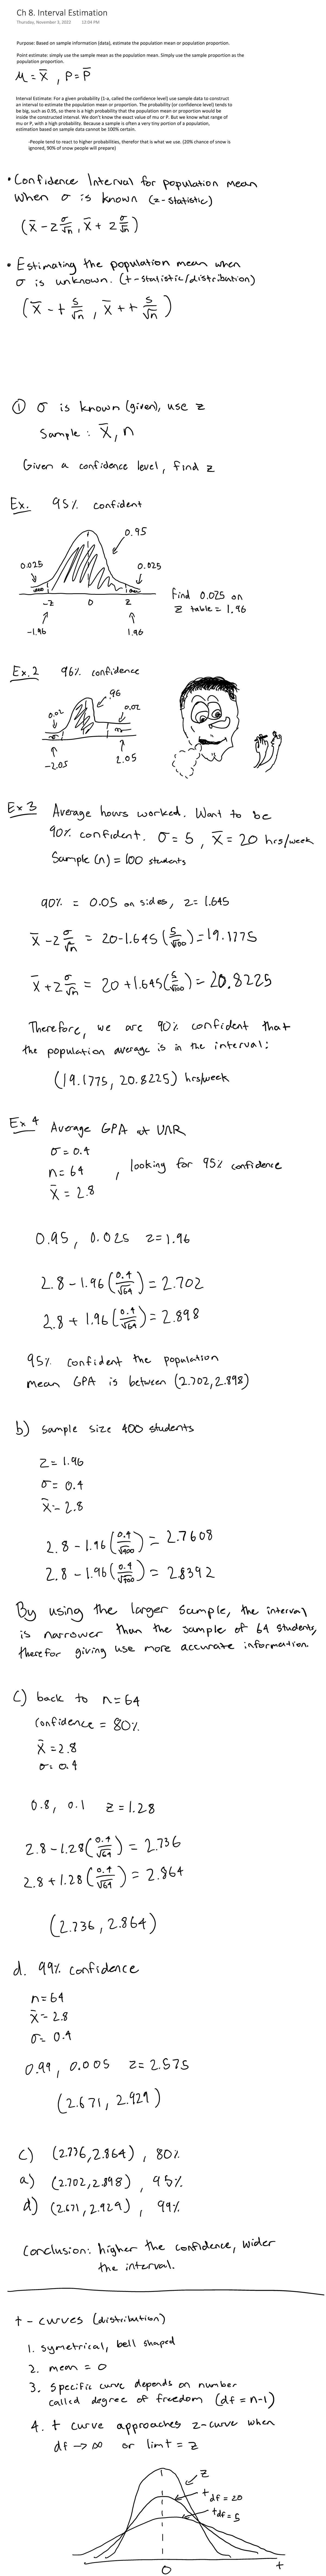 Ch 8. Interval Estimation
Thursday, November 3, 2022 12:04 PM
Purpose: Based on sample information (data), estimate the population mean or population proportion.
Point estimate: simply use the sample mean as the population mean. Simply use the sample proportion as the
population proportion.
M = x̄ , P = p̄
Interval Estimate: For a given probability (1-α, called the confidence level) use sample data to construct
an interval to estimate the population mean or proportion. The probability (or confidence level) tends to
be big, such as 0.95, so there is a high probability that the population mean or proportion would be
inside the constructed interval. We don't know the exact value of mu or P. But we know what range of
mu or P, with a high probability. Because a sample is often a very tiny portion of a population,
estimation based on sample data cannot be 100% certain.
-People tend to react to higher probabilities, therefor that is what we use. (20% chance of snow is
ignored, 90% of snow people will prepare)
• Confidence Interval for population mean
when σ is known (z-statistic)
(x̄ - z σ/√n, x̄ + z σ/√n)
• Estimating the population mean when
σ is unknown. (t-statistic/distribution)
(x̄ - t s/√n, x̄ + t s/√n)
① σ is known (given), use z
Sample: x̄, n
Given a confidence level, find z
Ex. 95% confident
0.95
0.025 0.025
-z 0 z
-1.96 1.96
Find 0.025 on
z table = 1.96
Ex.2 96% confidence
.96
0.02 0.02
-2.05 2.05
Ex 3 Average hours worked. Want to be
90% confident. σ = 5, x̄ = 20 hrs/week
Sample (n) = 100 students
90% = 0.05 on sides, z = 1.645
x̄ - z σ/√n = 20 - 1.645(5/√100) = 19.1775
x̄ + z σ/√n = 20 + 1.645(5/√100) = 20.8225
Therefore, we are 90% confident that
the population average is in the interval:
(19.1775, 20.8225) hrs/week
Ex 4 Average GPA at UNR
σ = 0.4
n = 64 , looking for 95% confidence
x̄ = 2.8
0.95, 0.025 z = 1.96
2.8 - 1.96(0.4/√64) = 2.702
2.8 + 1.96(0.4/√64) = 2.898
95% confident the population
mean GPA is between (2.702, 2.898)
b) sample size 400 students
z = 1.96
σ = 0.4
x̄ = 2.8
2.8 - 1.96(0.4/√400) = 2.7608
2.8 - 1.96(0.4/√400) = 2.8392
By using the larger sample, the interval
is narrower than the sample of 64 students,
therefor giving use more accurate information.
C) back to n = 64
confidence = 80%
x̄ = 2.8
σ = 0.4
0.8, 0.1 z = 1.28
2.8 - 1.28(0.4/√64) = 2.736
2.8 + 1.28(0.4/√64) = 2.864
(2.736, 2.864)
d. 99% confidence
n = 64
x̄ = 2.8
σ = 0.4
0.99, 0.005 z = 2.575
(2.671, 2.929)
c) (2.736, 2.864), 80%
a) (2.702, 2.898), 95%
d) (2.671, 2.929), 99%
Conclusion: higher the confidence, wider
the interval.
t - curves (distribution)
1. symetrical, bell shaped
2. mean = 0
3. specific curve depends on number
called degree of freedom (df = n-1)
4. t curve approaches z-curve when
df → ∞ or lim t = z
z
t df = 20
t df = 5
0 t